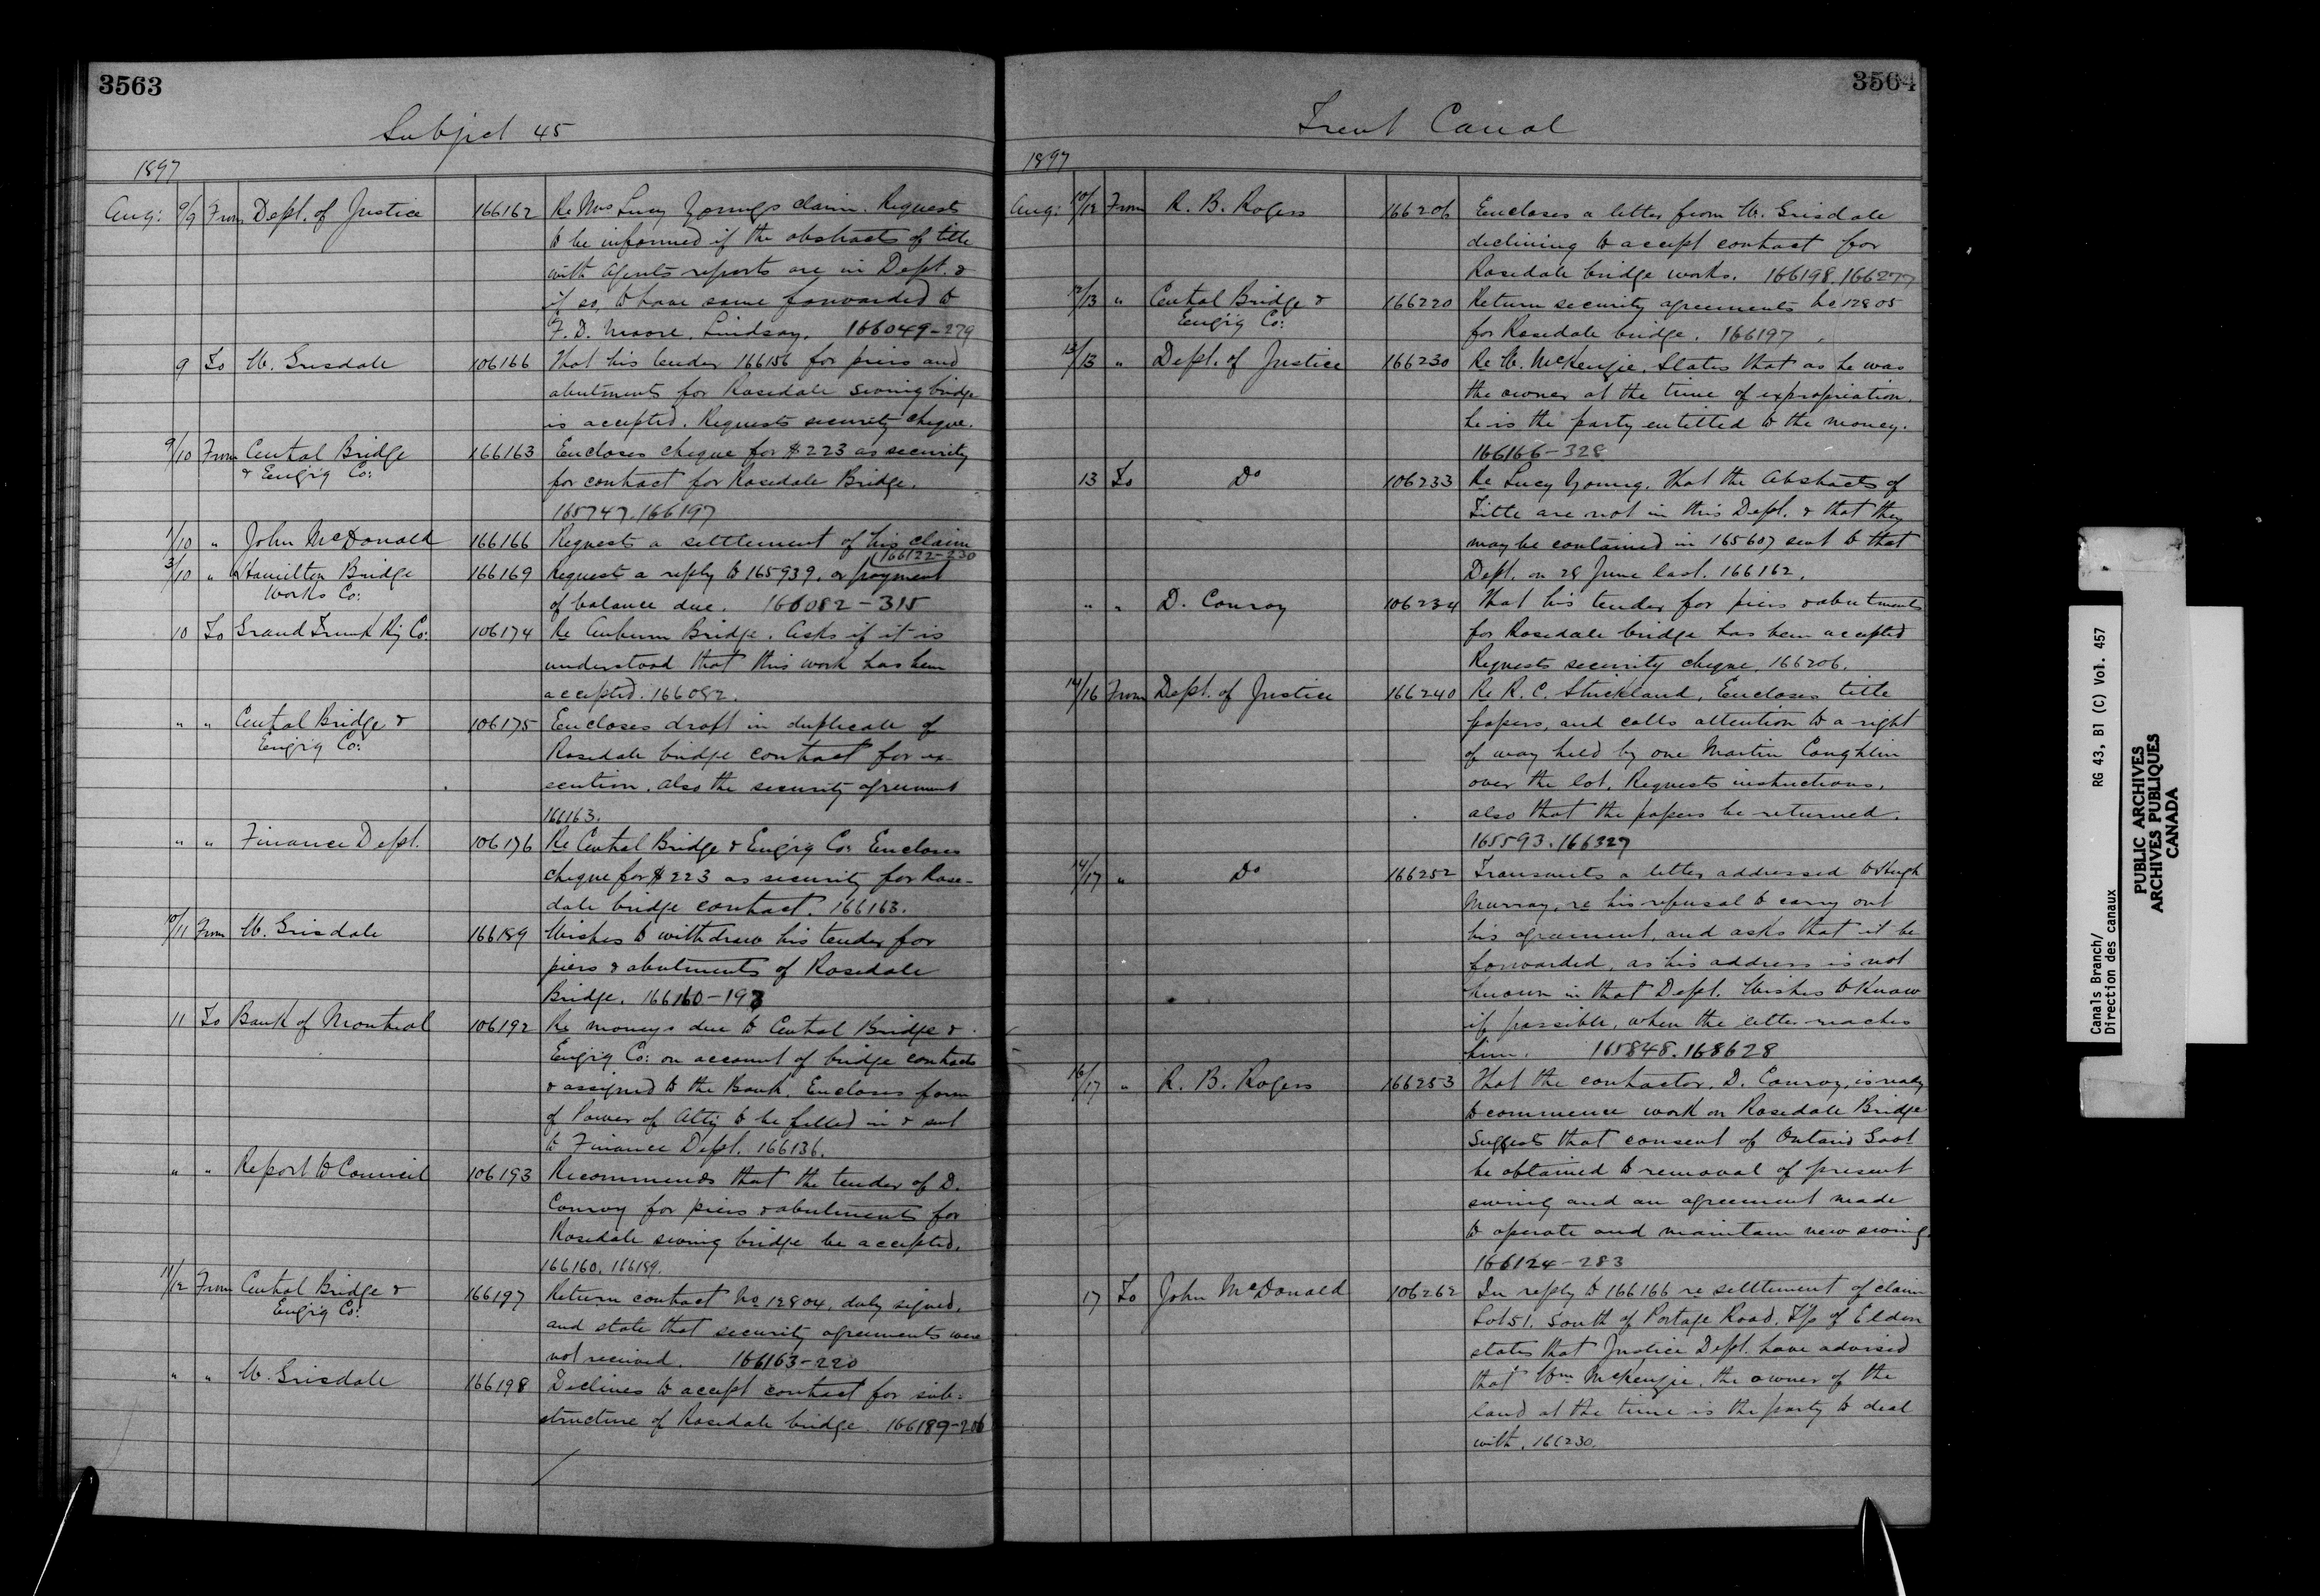 3563
Subject 45
1897
Aug: 9/9 From Dept. of Justice 166162 Re Mrs Lucy Youngs claim. Requests
to be informed if the abstracts of title
with Agents reports are in Dept. &
if so, to have same forwarded to
F. D. Moore, Lindsay. 166049-279
9 To W. Grisdale 106166 That his tender 166156 for piers and
abutments for Rosedale swing bridge
is accepted. Requests security cheque.
9/10 From Central Bridge 166163 Encloses cheque for $223 as security
& Eng'g Co: for contract for Rosedale Bridge.
165747.166197
1/10 " John McDonald 166166 Requests a settlement of his claim
166122-230
3/10 " Hamilton Bridge 166169 Request a reply to 165939, or payment
Works Co: of balance due. 166082-315
10 To Grand Trunk Ry Co: 106174 Re Auburn Bridge. Asks if it is
understood that this work has been
accepted. 166082.
" " Central Bridge & 106175 Encloses draft in duplicate of
Eng'g Co: Rosedale bridge contract for ex-
ecution, also the security agreement
166163.
" " Finance Dept. 106176 Re Central Bridge & Eng'g Co: Encloses
cheque for $223 as security for Rose-
dale bridge contract. 166163.
10/11 From W. Grisdale 166189 Wishes to withdraw his tender for
piers & abutments of Rosedale
Bridge. 166160-193
11 To Bank of Montreal 106192 Re moneys due to Central Bridge &
Eng'g Co: on account of bridge contracts
& assigned to the Bank. Encloses form
of Power of Atty to be filled in & sent
to Finance Dept. 166136.
" " Report to Council 106193 Recommends that the tender of D.
Conroy for piers & abutments for
Rosedale swing bridge be accepted.
166160. 166189.
11/12 From Central Bridge & 166197 Return contract No 12804, duly signed,
Eng'g Co: and state that security agreements were
not received. 166163-220
" " W. Grisdale 166198 Declines to accept contract for sub-
structure of Rosedale bridge. 166189-206
3564
Trent Canal
1897
Aug: 10/12 From R. B. Rogers 166206 Encloses a letter from W. Grisdale
declining to accept contract for
Rosedale bridge works. 166198.166277
12/13 " Central Bridge & 166220 Return security agreements No 12805
Eng'g Co: for Rosedale bridge. 166197
13/13 " Dept. of Justice 166230 Re W. McKenzie. States that as he was
the owner at the time of expropriation,
he is the party entitled to the money.
166166-328
13 To Do 106233 Re Lucy Young. That the Abstracts of
Title are not in this Dept. & that they
may be contained in 165607 sent to that
Dept. on 28 June last. 166162.
" " D. Conroy 106234 That his tender for piers & abutments
for Rosedale bridge has been accepted
Requests security cheque, 166206.
14/16 From Dept. of Justice 166240 Re R. C. Strickland, Encloses title
papers, and calls attention to a right
of way held by one Martin Coughlin
over the lot. Requests instructions,
also that the papers be returned.
165593.166327
14/17 " Do 166252 Transmits a letter addressed to Hugh
Murray, re his refusal to carry out
his agreement, and asks that it be
forwarded, as his address is not
known in that Dept. Wishes to know
if possible, when the letter reaches
him. 165848.168628
16/17 " R. B. Rogers 166253 That the contractor, D. Conroy, is ready
to commence work on Rosedale Bridge
Suggests that consent of Ontario Govt
be obtained to removal of present
swing and an agreement made
to operate and maintain new swing
166124-283
17 To John McDonald 106262 In reply to 166166 re settlement of claim
Lot 51. South of Portage Road, T/p of Eldon
states that Justice Dept. have advised
that Wm McKenzie, the owner of the
land at the time is the party to deal
with. 166230.
Canals Branch/ RG 43, B1 (C) Vol. 457
Direction des canaux
PUBLIC ARCHIVES
ARCHIVES PUBLIQUES
CANADA